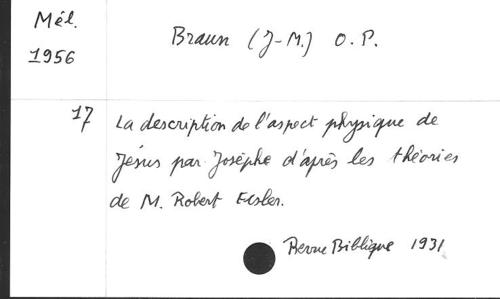 Mél.
1956
Braun (J-M.) O.P.
17
La description de l'aspect physique de
Jésus par Josèphe d'après les théories
de M. Robert Eisler.
Revue Biblique 1931